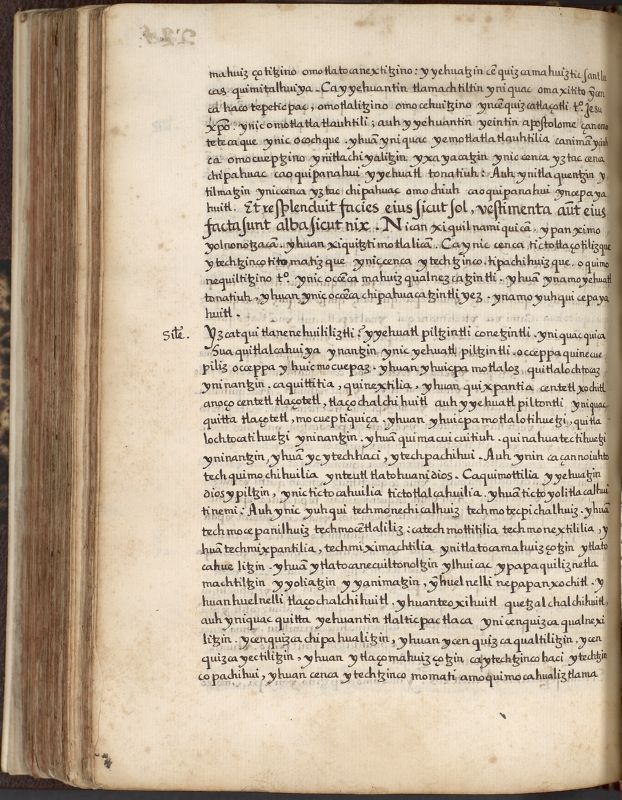 mahuizçotitzino omotlatocanextitzino: yyehuatzin cēquizcamahuiztic sant lu
cas quimitalhuiya. Ca yyehuantin tlamachtiltin yniquac omaxitito ȳcen
ca huecatepeticpac, omotlalitzino omocehuitzino ynuēquizcatlaçotli to. Jesu
xpō. ynic omotlatlatlauhtili; auh yyehuantin yeintin apostolome çanemo
tetecaque ynic ocochque. yhuā yniquac yemotlatlatlauhtilia caniman yuh
ca omocueptzino ynitlachiyalitzin yxayacatzin yniccenca yztac cenca
chipahuac caoquipanahui yyehuatl tonatiuh: Auh ynitlaquentzin y
tilmatzin yniccenca yztac chipahuac omochiuh caoquipanahui yncepaya
huitl. Et resplenduit facies eius sicut sol, vestimenta aūt eius
facta sunt alba sicut nix. Nican xiquilnamiquicā. ypan ximo
yolnonotzacā. yhuan xiquitztimotlalicā. Ca ynic cenca tictotlaçotilizque
ytechtzinco titomatizque yniccenca ytechtzinco. tipachihuizque. oquimo
nequiltitzino to. ynic occēca mahuizqualnezcatzintli. yhuā ynamo yehuatl
tonatiuh, yhuan ynic occēca chipahuacatzintli yez. ynamo yuhqui cepaya
huitl.
Site. Yzcatqui tlanenehuililiztli? yyehuatl piltzintli conetzintli. yniquac quica
Sua quitlalcahuiya ynantzin ynic yehuatl piltzintli. occeppa quinecue
piliz occeppa yhuicmocuepaz. yhuan yhuicpa motlaloz quitlalochtocaz
yninantzin. caquittitia, quinextilia, yhuan quixpantia centetl xochitl
anoço centetl tlaçotetl, tlaçochalchihuitl auh yyehuatl piltontli yniquac
quitta tlaçotetl, mocueptiquiça. yhuan yhuicpa motlalotihuetzi, quitla
lochtocatihuetzi yninantzin. yhuā quimacuicuitiuh. quinahuatectihuetzi
yninantzin, yhuan yc ytechhaci, ytechpachihui. Auh ynin ca çannoiuhto
techquimochihuilia ynteutl tlatohuani dios. Caquimottilia yyehuatzin
dios ypiltzin, ynic tictocahuilia tictotlalcahuilia. yhuā tictoyolitlacalhui
tinemi: Auh ynic yuhqui techmonechicalhuiz techmotecpichalhuiz. yhuā
techmocepanilhuiz techmocētlaliliz: catechmottitilia techmonextililia, y
huā techmixpantilia, techmiximachtilia ynitlatocamahuizçotzin ytlato
cahuelitzin. yhuā ytlatocanecuiltonoltzin ylhuicac ypapaquiliznetla
machtiltzin yyoliatzin yyanimatzin, ȳhuelnelli nepapan xochitl. y
huan huelnelli tlaçochalchihuitl, yhuan teoxihuitl quetzalchalchihuitl,
auh yniquac quitta yehuantin tlalticpactlaca ynicenquizca qualnexi
litzin. ycenquizca chipahualitzin, yhuan ycenquizca qualtilitzin. ycen
quizca yectilitzin, yhuan ytlaçomahuizçotzin ca ytechtzinco haci ytechtzin
co pachihui, yhuan cenca ytechtzinco momati amo quimocahualiztlama